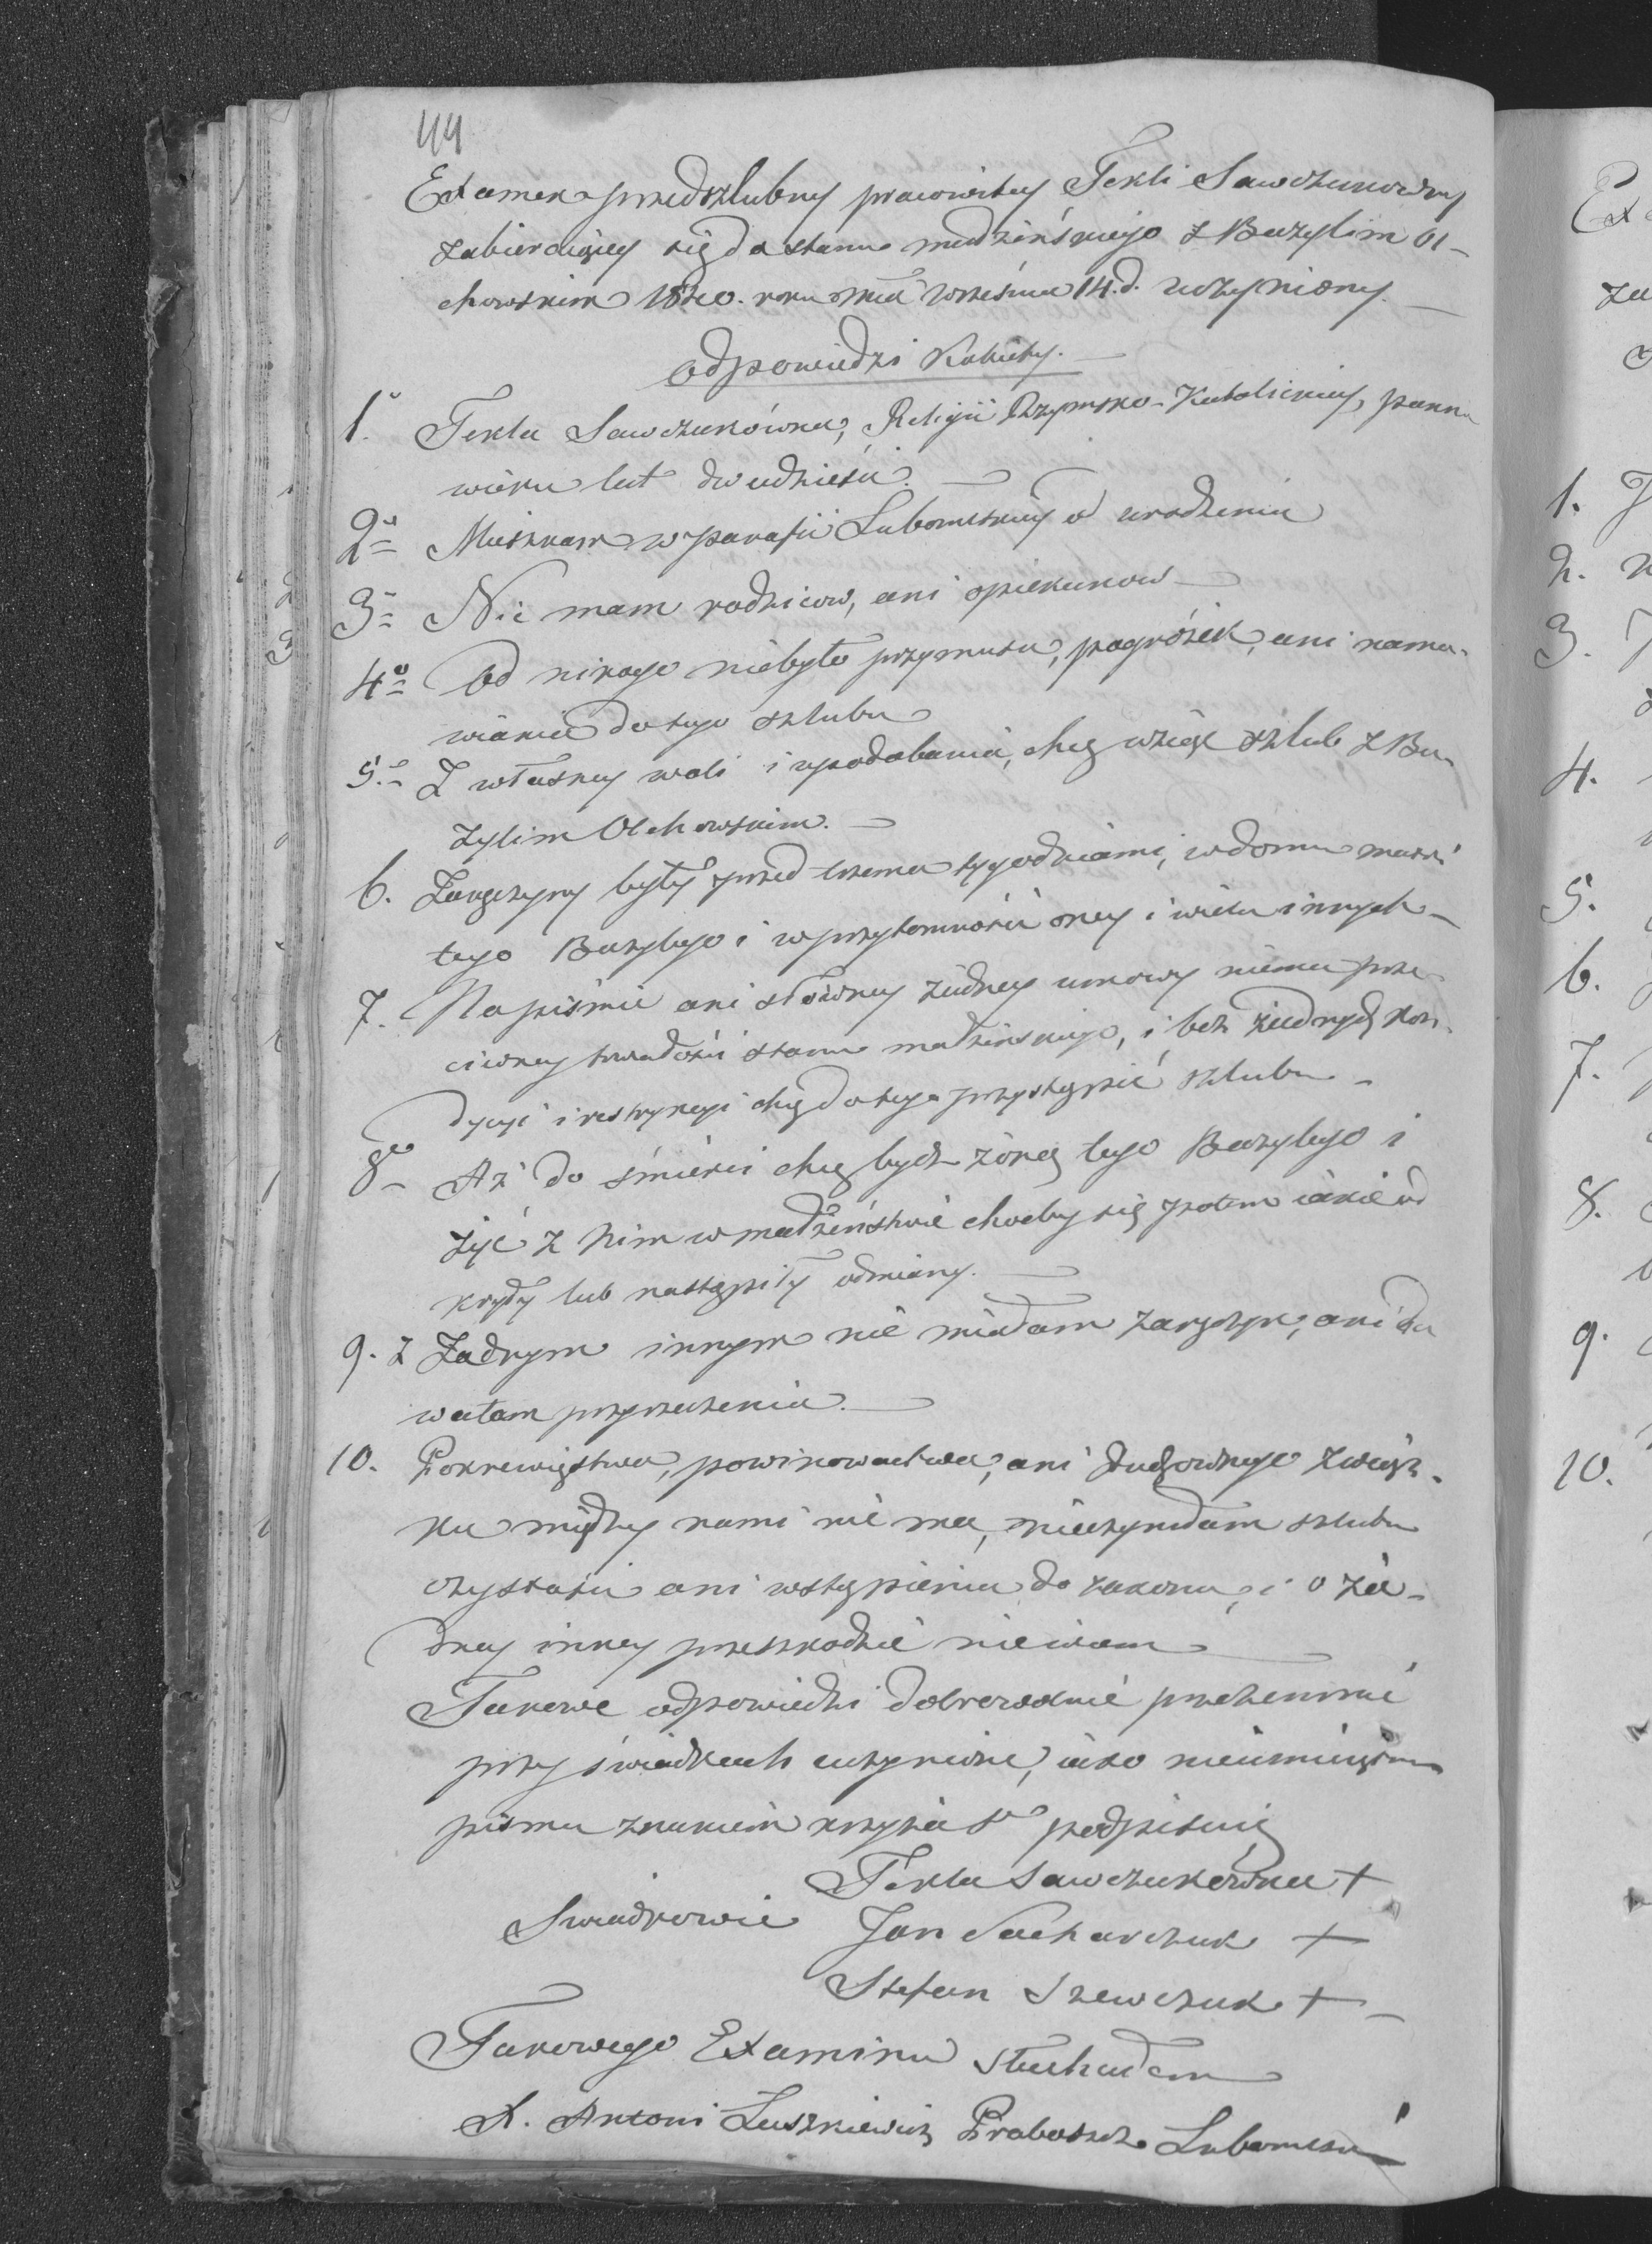 44
Examen przedszlubny pracowitey Tekli Sawczukowny
zabieraiącey się do stanu małżeńskiego z Bazylim Ol-
chowskim 1820. roku mca Września 14. d. uczyniony.
Odpowiedzi Kobiety.
1.° Tekla Sawczukówna, Religii Rzymsko-Katolickiey, panna
wieku lat dwadzieścia.
2° Mieszkam w parafii Lubomlskiey od urodzenia
3° Nie mam rodzicow, ani opiekunow
4° Od nikogo niebyło przymusu, pogrózek, ani nama-
wiania do tego szlubu
5.° Z własney woli i upodobania, chcę wziąść szlub z Ba-
zylim Olchowskim.
6. Zaręczyny były przed trzema tygodniami, w domu matki
tego Bazylego i w przytomności oney i wielu innych
7. Na piśmie ani słowney żadney umowy niema prze-
ciwney trwałości stanu małżeńskiego, i bez żadnych kon-
dycyi i restrykcyi chcę do tego przystąpić szlubu
8° Aż do śmierci chcę bydź żoną tego Bazylego i
żyć z nim w małżeństwie choćby się potem iakie od
kryły lub nastąpiły odmiany.
9. z Żadnym innym nie miałam zaręczyn, ani da
wałam przyrzeczenia.
10. Pokrewieństwa, powinowactwa, ani duchownego związ-
ku między nami nie ma, nieczyniłam szlubu
czystości ani wstąpienia do zakonu, i o ża-
dney inney przeszkodzie niewiem
Takowe odpowiedzi dobrowolnie przezemnie
przy świadkach uczynione, iako nieumieiętna
pisma znakiem krzyża S° podpisuię
Tekla Sawczukówna +
Swiadkowie Jan Sacharczuk +
Stefan Szewczuk +
Takowego Examinu słuchałem
X. Antoni Luszkiewicz Proboszcz Lubomlski